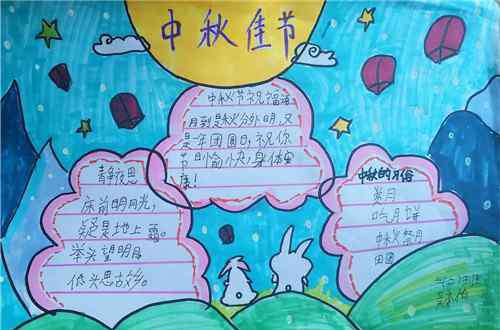 中秋佳节
中秋节祝福语
月到是秋分外明,又
是一年团圆日,祝你
节日愉快,身体健
康!
静夜思
床前明月光,
疑是地上霜。
举头望明月
低头思故乡。
中秋的习俗
赏月
吃月饼
中秋祭月
团圆